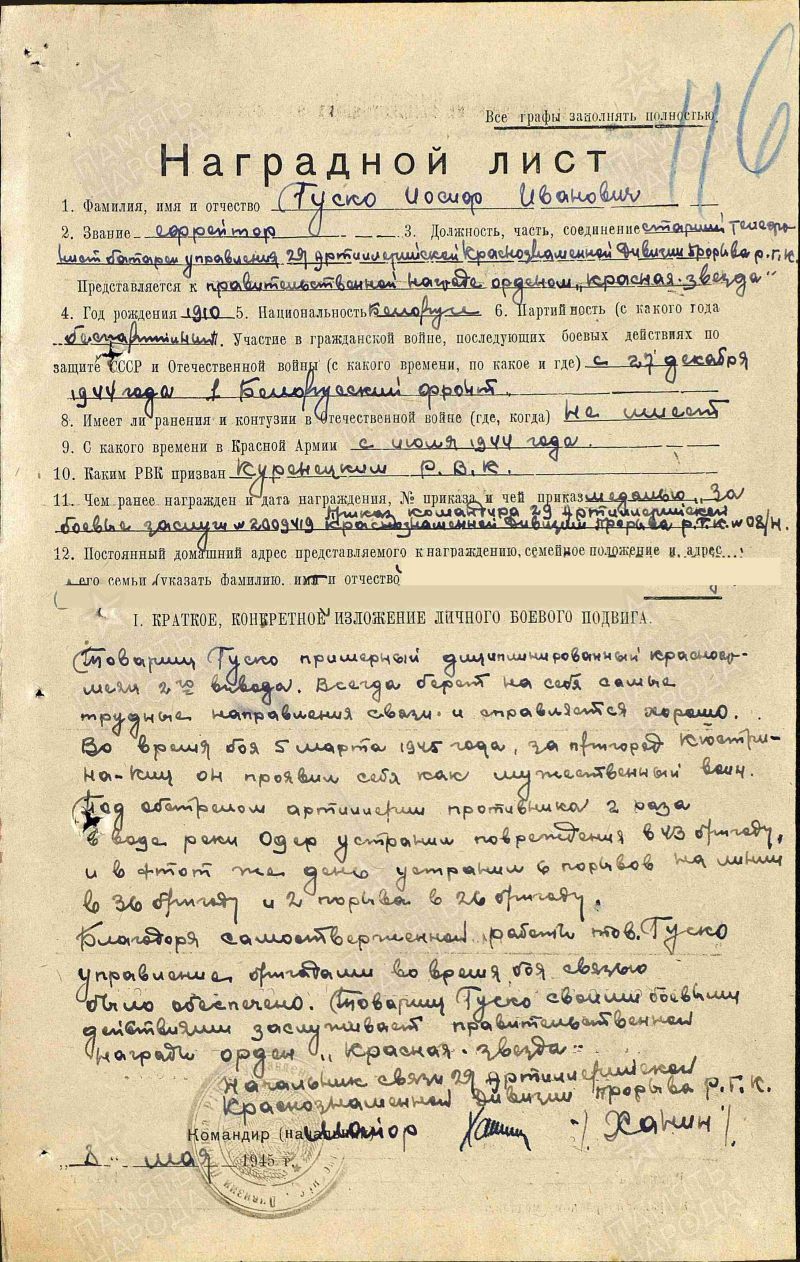 116
Все графы заполнять полностью.
Наградной лист
1. Фамилия, имя и отчество Гуско Иосиф Иванович
2. Звание ефрейтор 3. Должность, часть, соединение старший телефо-
нист батареи управления 29 Артиллерийской Краснознаменной Дивизии Прорыва Р.Г.К.
Представляется к правительственной награде орденом „Красная-звезда"
4. Год рождения 1910 5. Национальность Белорус 6. Партийность (с какого года
беспартийный. Участие в гражданской войне, последующих боевых действиях по
защите СССР и Отечественной войны (с какого времени, по какое и где) с 27 декабря
1944 года 1 Белорусский фронт.
8. Имеет ли ранения и контузии в Отечественной войне (где, когда) Не имеет
9. С какого времени в Красной Армии с июля 1944 года.
10. Каким РВК призван Куренецким Р.В.К.
11. Чем ранее награжден и дата награждения, № приказа и чей приказ медалью „За
боевые заслуги №2009419 Приказ командира 29 Артиллерийской
Краснознаменной Дивизии Прорыва Р.Г.К. №08/н.
12. Постоянный домашний адрес представляемого к награждению, семейное положение и адрес
его семьи (указать фамилию, имя и отчество
I. КРАТКОЕ, КОНКРЕТНОЕ ИЗЛОЖЕНИЕ ЛИЧНОГО БОЕВОГО ПОДВИГА.
Товарищ Гуско примерный дисциплинированный красноар-
меец 2го взвода. Всегда берет на себя самые
трудные направления связи и справляется хорошо.
Во время боя 5 марта 1945 года, за пригород Кюстри-
на-Киц он проявил себя как мужественный воин.
Под обстрелом артиллерии противника 2 раза
в воде реки Одер устранил повреждения в 43 бригаду,
и в этот же день устранил 6 порывов на линии
в 36 бригаду и 2 порыва в 26 бригаду.
Благодоря самоотверженной работы тов. Гуско
управление бригадами во время боя связью
было обеспечено. Товарищ Гуско своими боевыми
действиями заслуживает правительственной
награды орден „Красная-звезда"
Начальник связи 29 Артиллерийской
Краснознаменной Дивизии Прорыва Р.Г.К.
Командир (начальник) Майор /Ханин/
„8" мая 1945 г.
ПАМЯТЬ НАРОДА